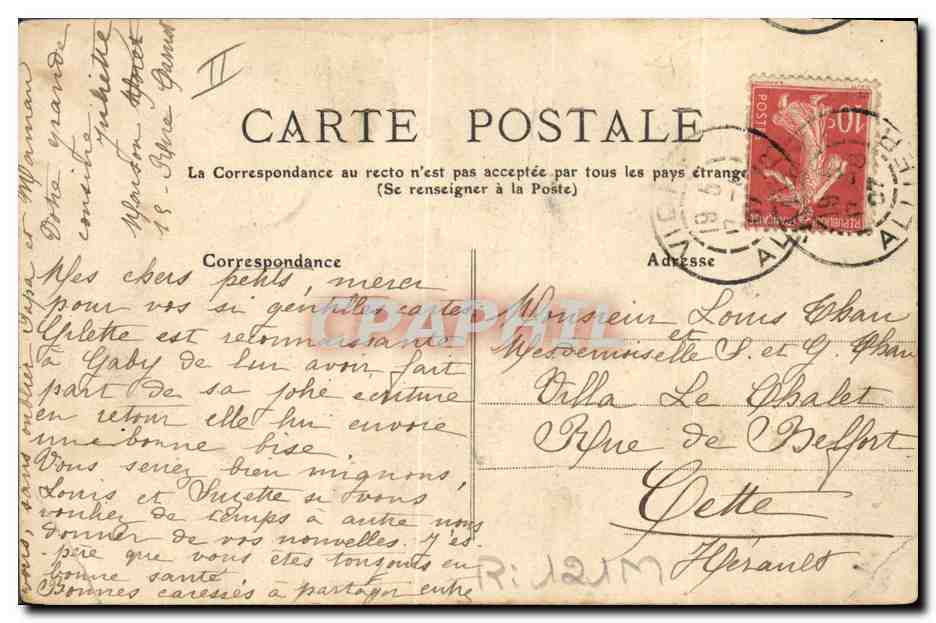 II
CARTE POSTALE
La Correspondance au recto n'est pas acceptée par tous les pays étrange
(Se renseigner à la Poste)
10c
POSTES
REPUBLIQUE FRANÇAISE
ALLIER
Correspondance
Mes chers petits, merci
pour vos si gentilles cartes
est reconnaissante
à Gaby de lui avoir fait
part de sa jolie écriture
en retour elle lui envoie
une bonne bise
Vous seriez bien mignons,
Louis et Suzette si vous
vouliez de temps à autre nous
donner de vos nouvelles. J'es-
père que vous êtes toujours en
bonne santé
Bonnes caresses à partager entre
vous, sans oublier Papa et Maman
Votre grande
cousine
Juliette
15
Adresse
Monsieur Louis
et
Mesdemoiselle S. et G.
Villa Le Chalet
Rue de Belfort
Cette
Hérault
R: 121M
CPAPHIL